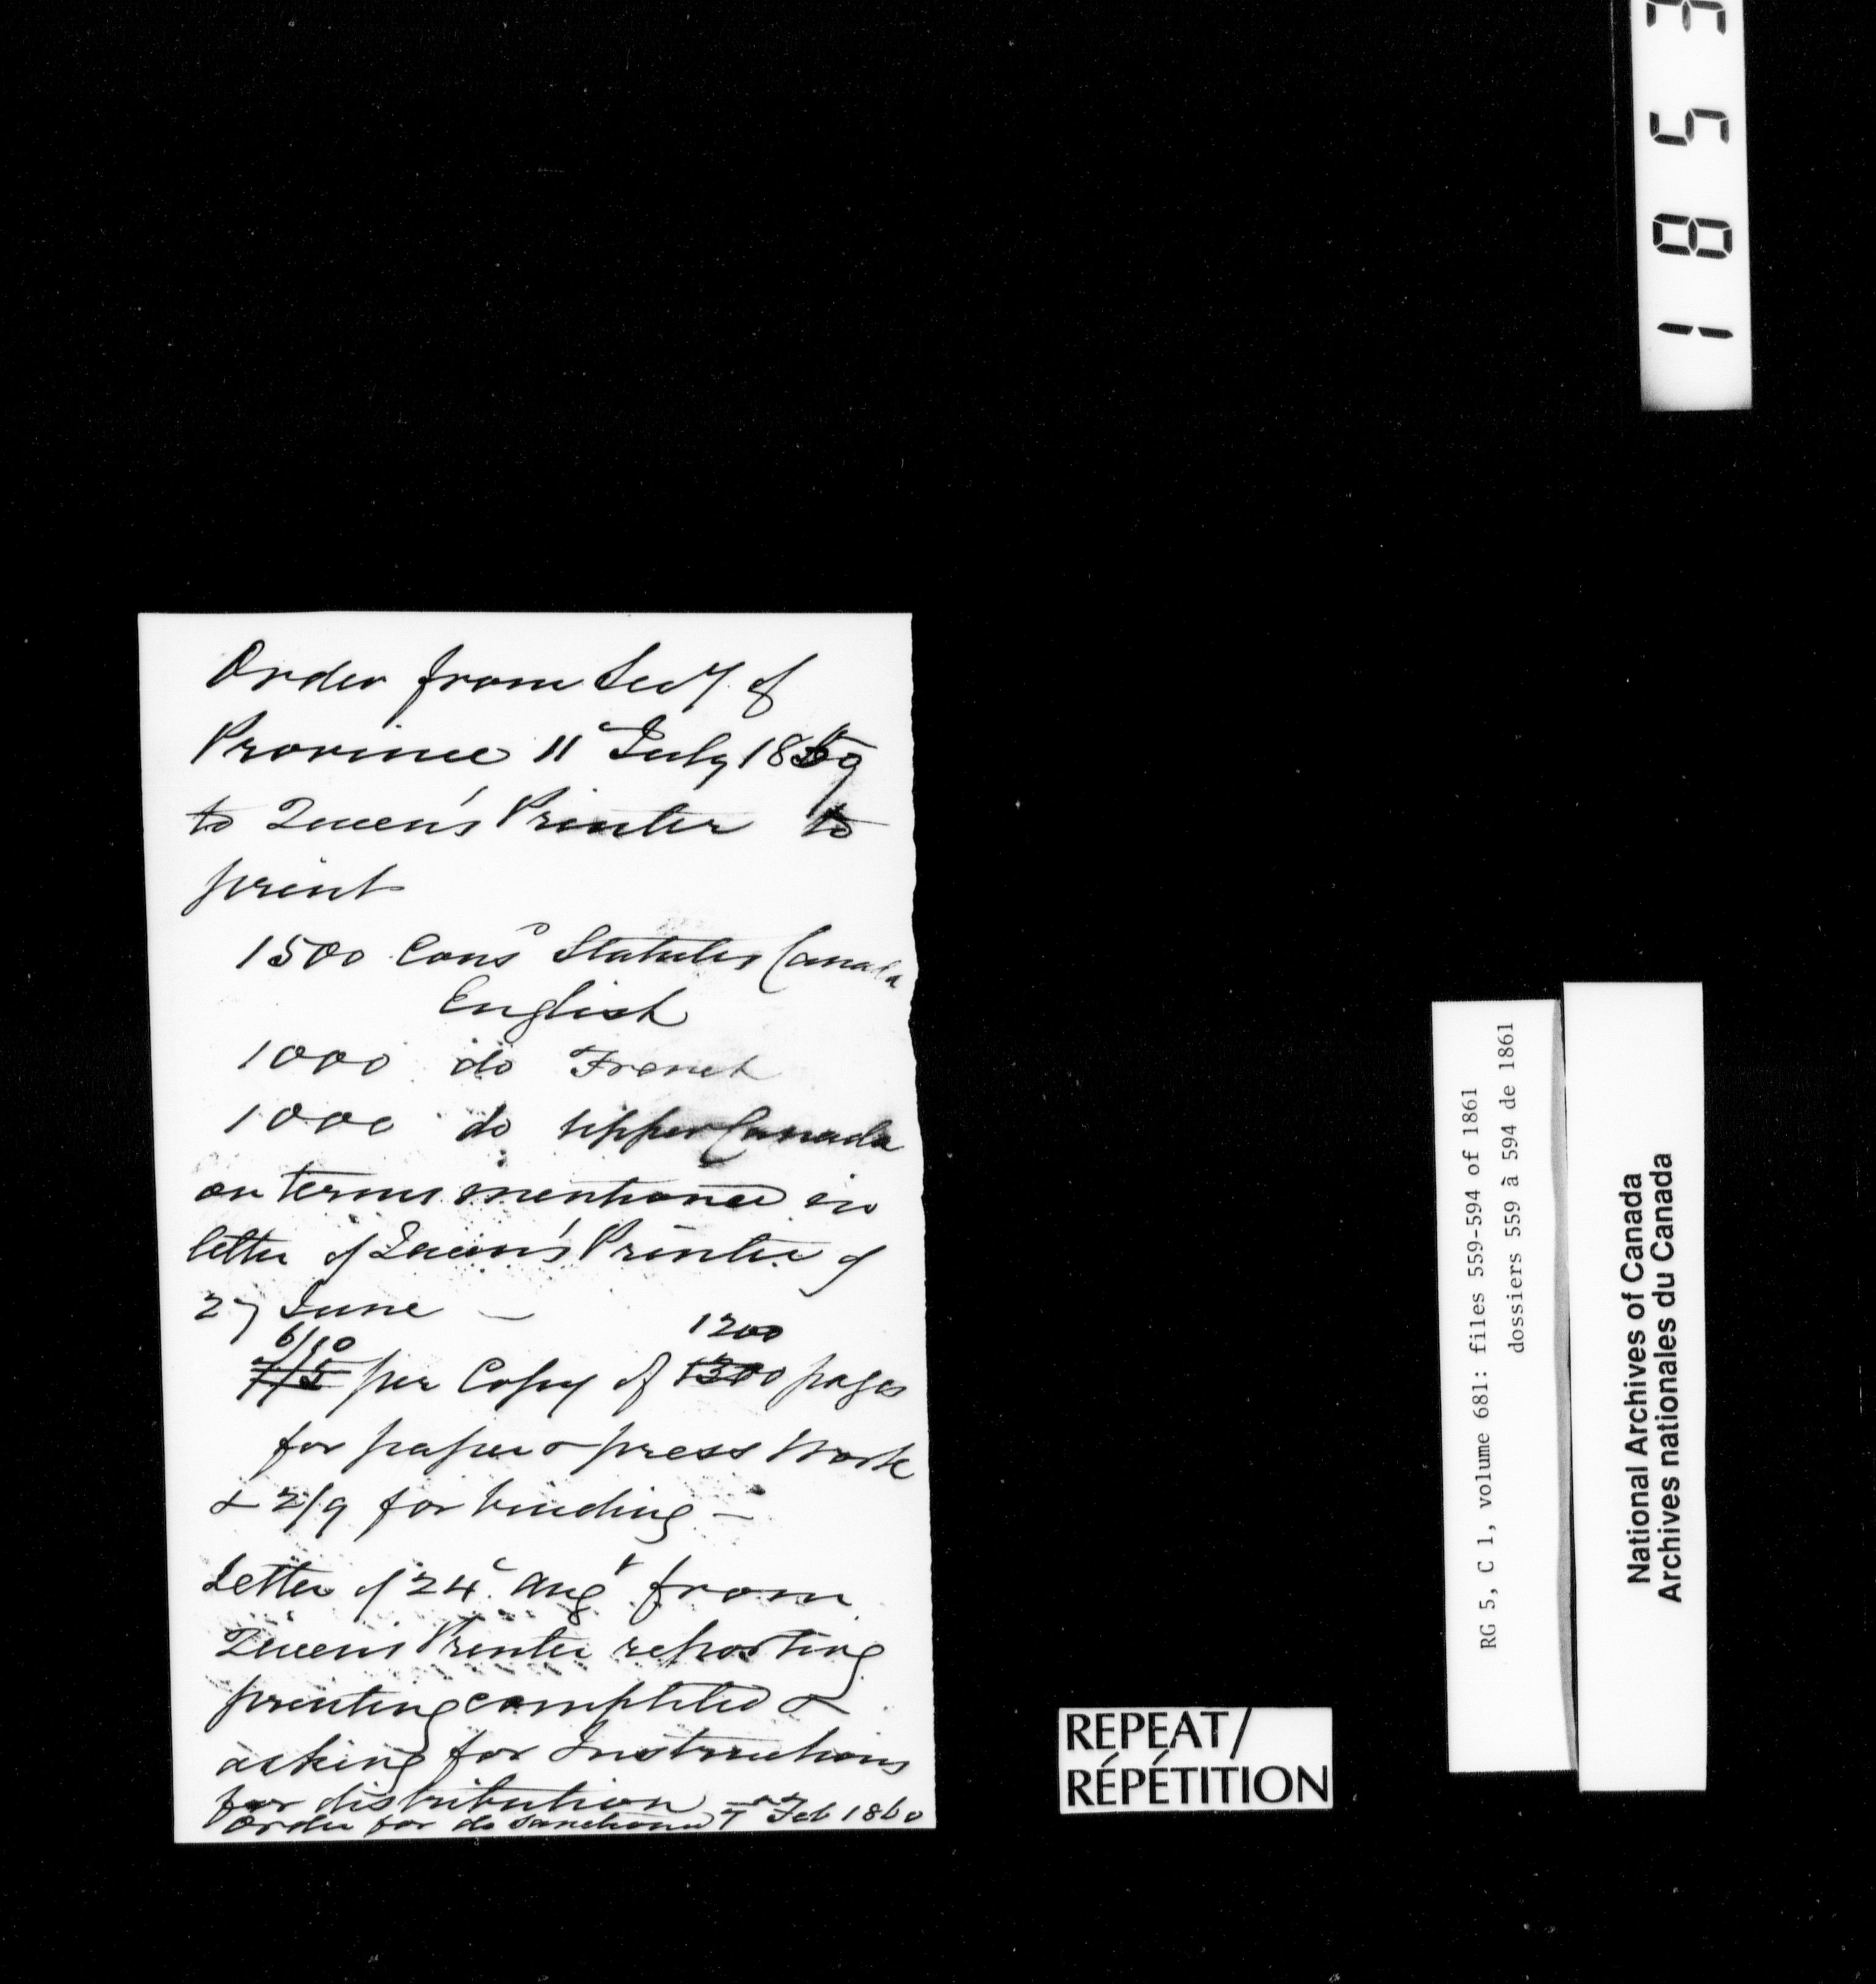 Order from Secy. of
Province 11 July 1859
to Queen's Printer to
print
1500 Consd Statutes Canada
English
1000 do French
1000 do Upper Canada
on terms mentioned in
letter of Queen's Printer of
27 June —
6/10 1200
7/5 per Copy of 1300 pages
for paper & press Work
& 2/9 for binding —
Letter of 24 Augt from
Queen's Printer reporting
printing completed &
asking for Instructions
for distribution
Order for do sanctioned 7 Feb 1860
1853
RG 5, C 1, volume 681: files 559-594 of 1861
dossiers 559 à 594 de 1861
National Archives of Canada
Archives nationales du Canada
REPEAT/
RÉPÉTITION